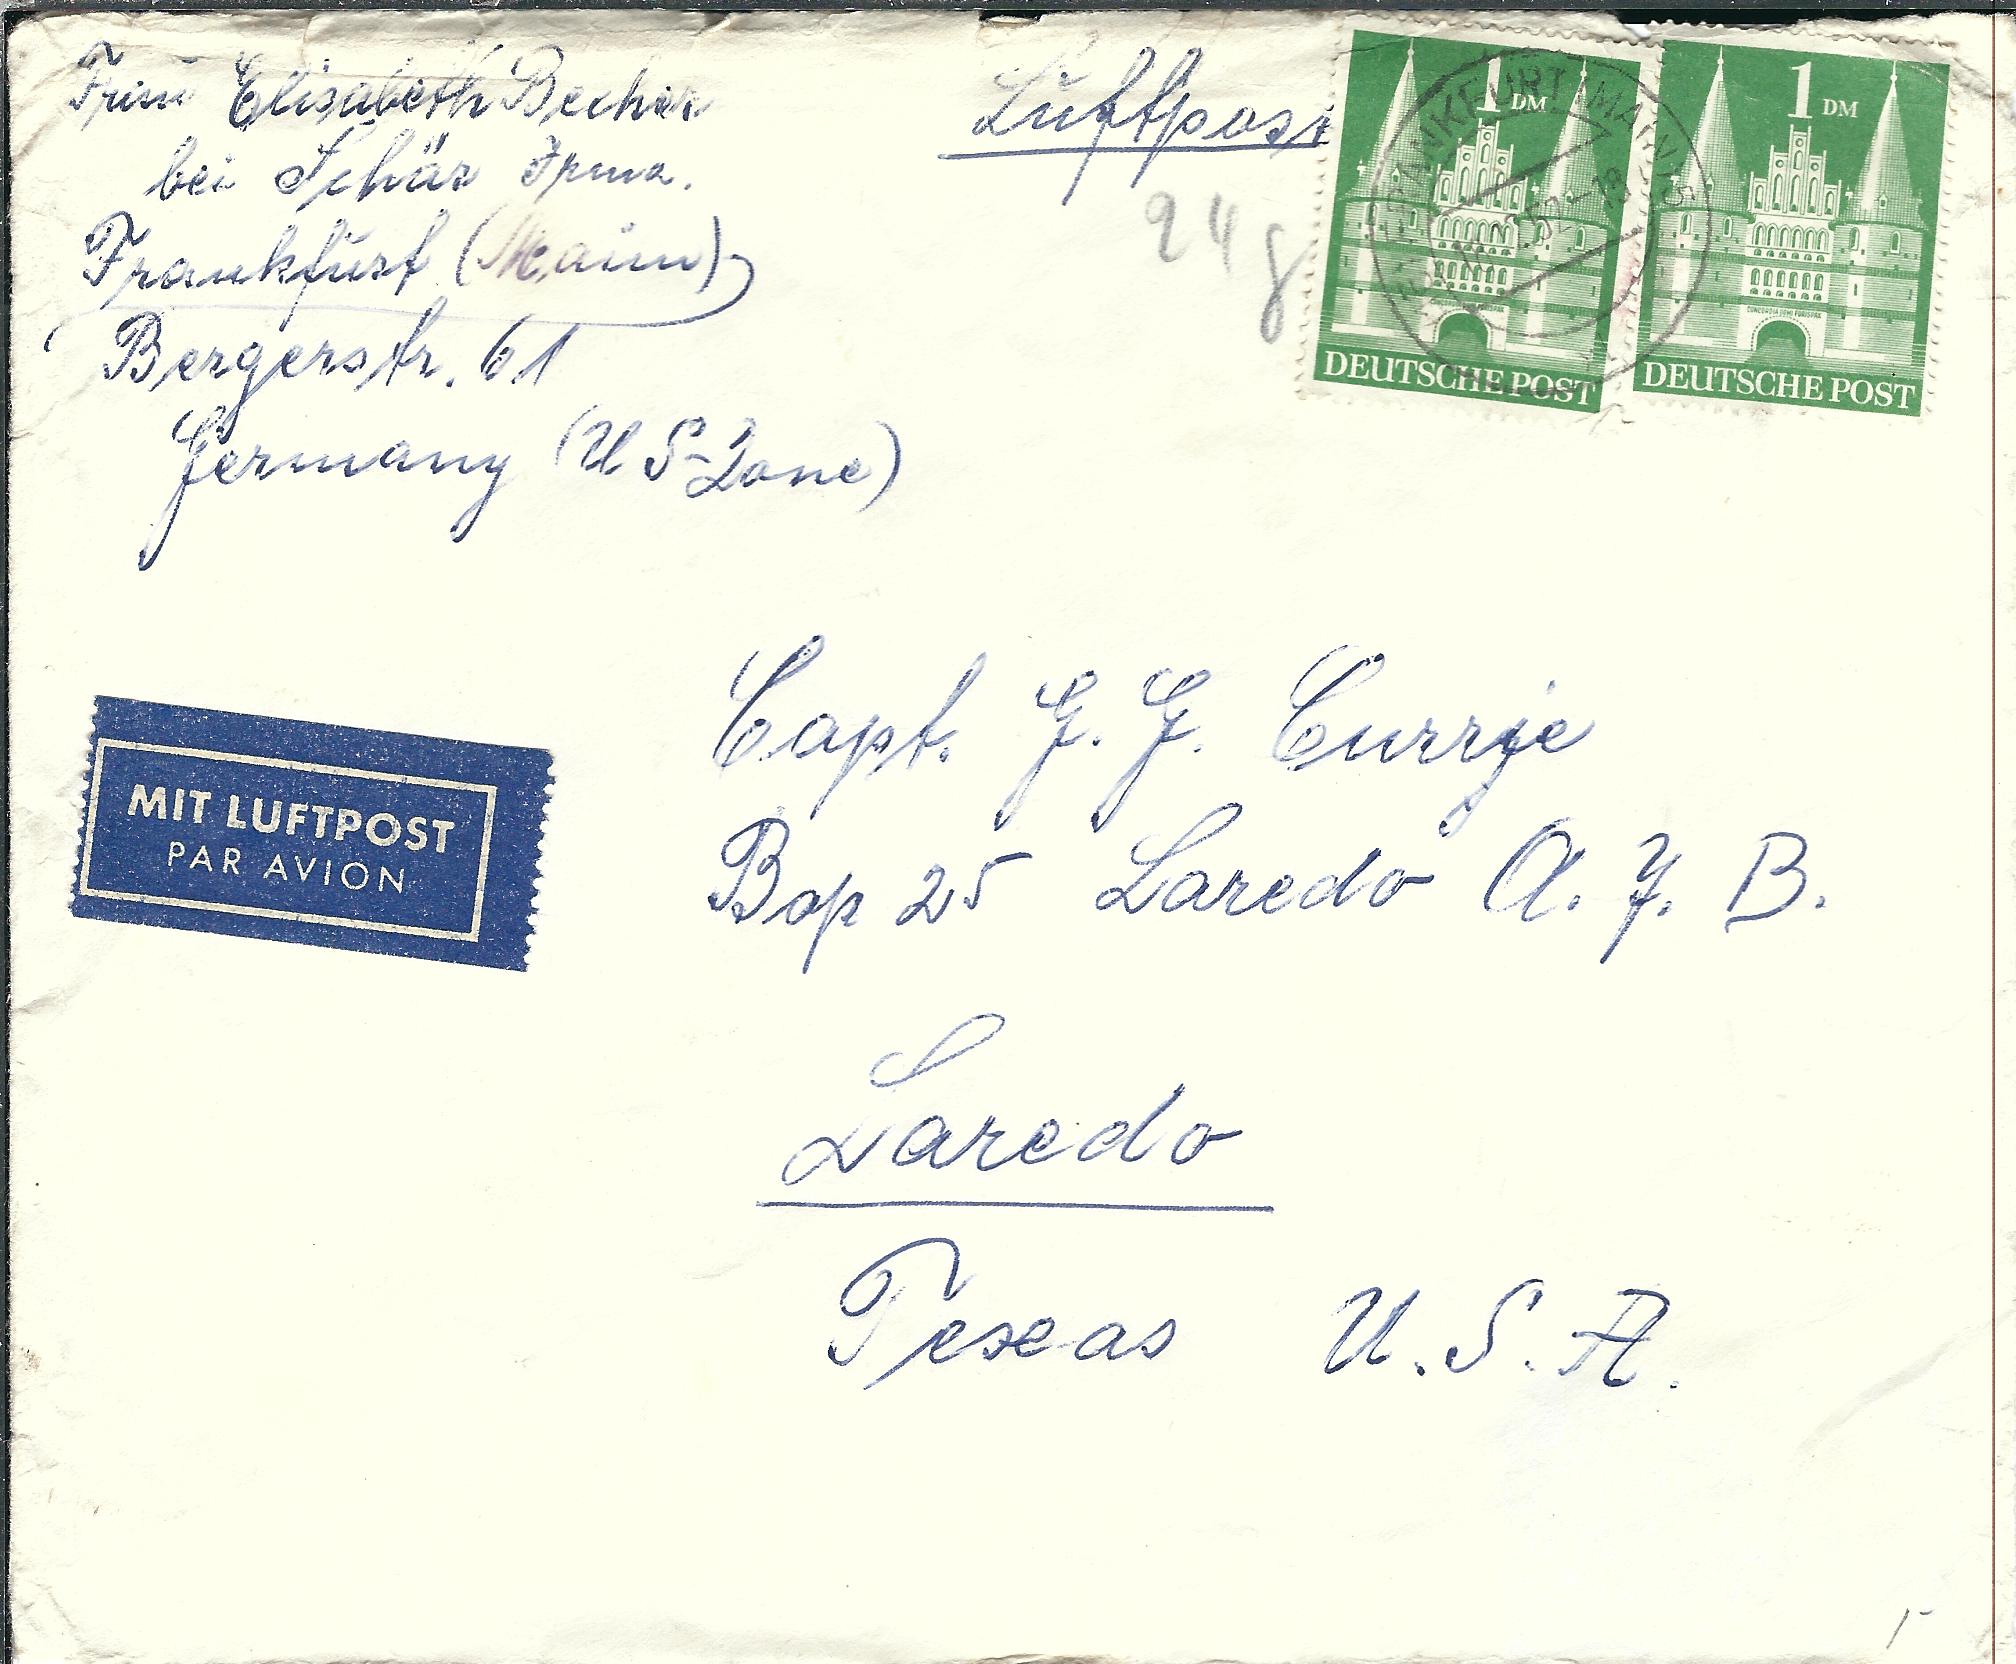 Frau Elisabeth Becher
bei Schär Irma.
Frankfurt (Main)
Bergerstr. 61
Germany (US-Zone)
Luftpost
24 g
1 DM
DEUTSCHE POST
1 DM
CONCORDIA DOMI FORIS PAX
DEUTSCHE POST
FRANKFURT (MAIN)
52-19
MIT LUFTPOST
PAR AVION
Capt. G. G. Currie
Box 25 Laredo A. F. B.
Laredo
Texas U. S. A.